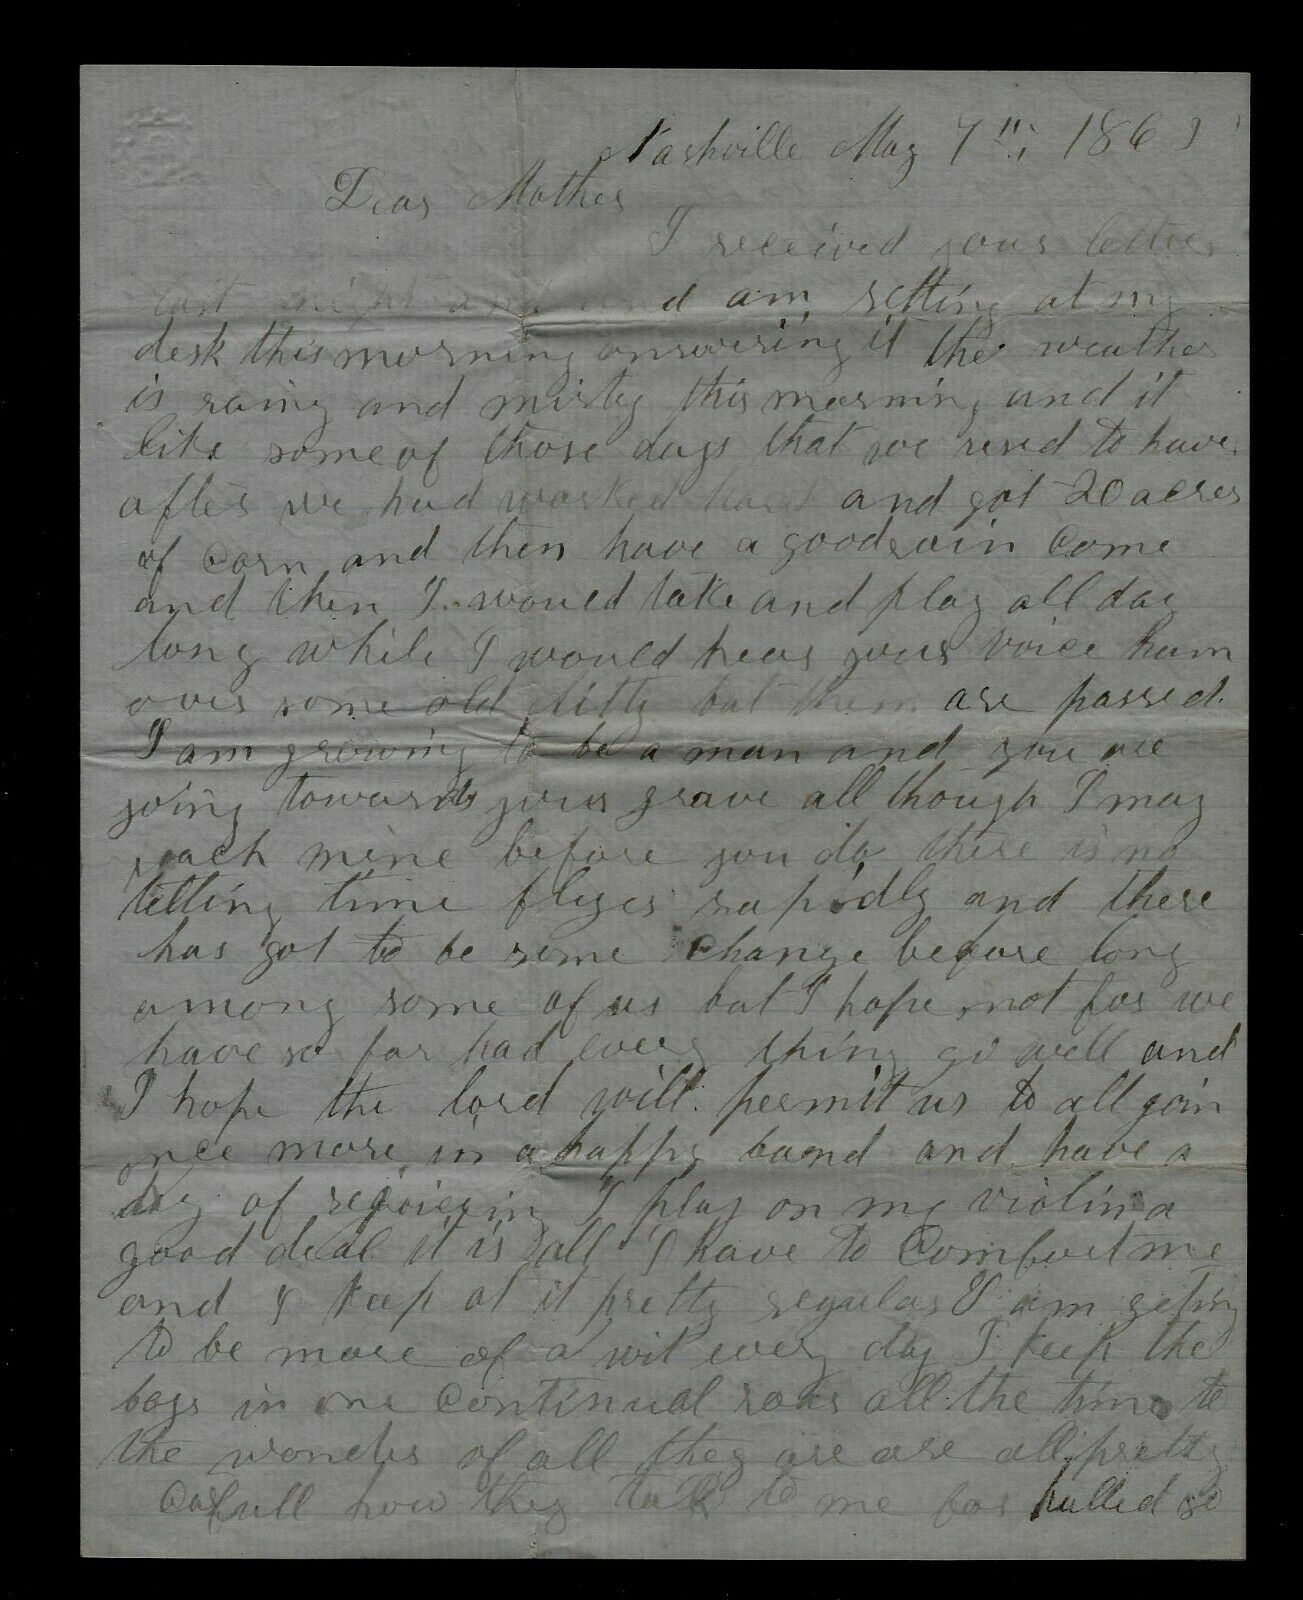 Nashville May 7th, 186
Dear Mother
I received your letter
last night and and am setting at my
desk this morning answering it the weather
is rainy and misty this morning and it
like some of those days that we used to have
after we had worked hard and got 20 acres
of corn and then have a good rain come
and then I would take and play all day
long while I would hear your voice hum
over some old ditty but them are passed.
I am growing to be a man and you are
going towards your grave all though I may
reach mine before you do there is no
telling time flyes rapidly and there
has got to be some change before long
among some of us but I hope not for we
have so far had every thing go well and
I hope the lord will permit us to all join
once more in a happy band and have a
day of rejoicing I play on my violin a
good deal it is all I have to comfort me
and I keep at it pretty regular I am geting
to be more of a wit every day I keep the
boys in one continual roar all the time to
the wonder of all they are are all pretty
carfull how they talk to me for